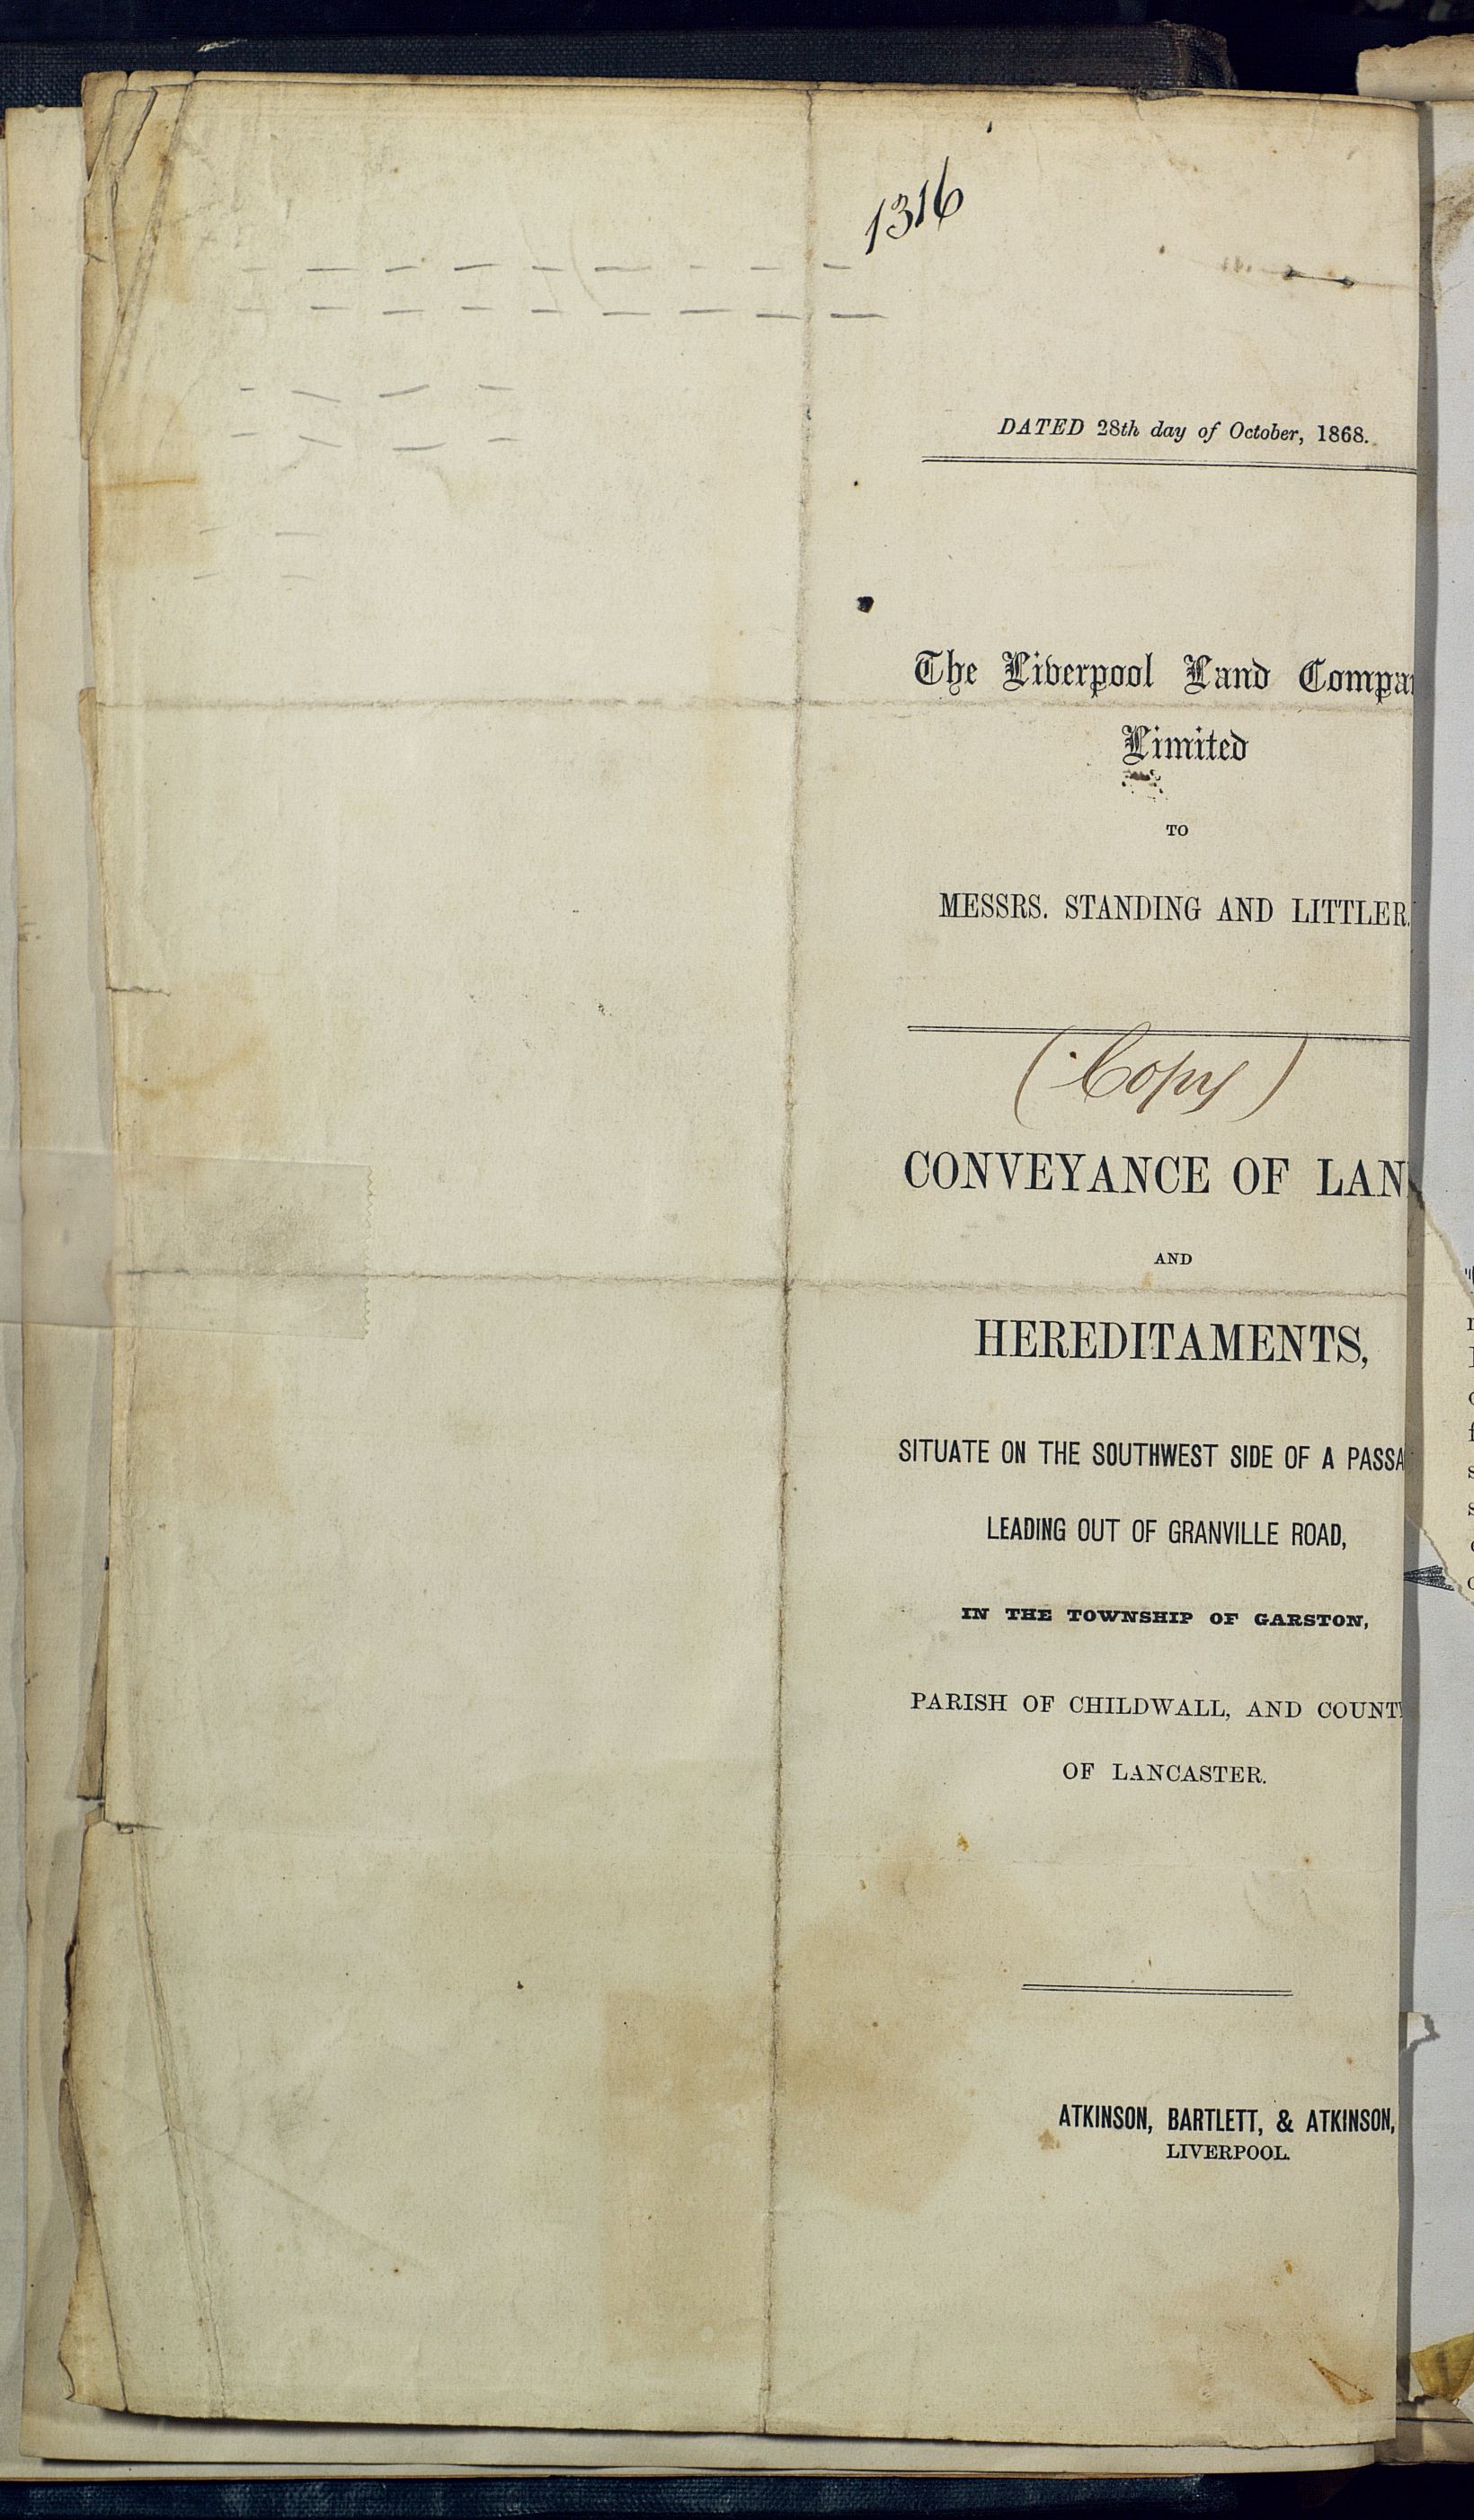 1316
DATED 28th day of October, 1868.
The Liverpool Land Compa
Limited
TO
MESSRS. STANDING AND LITTLER.
(Copy)
CONVEYANCE OF LAN
AND
HEREDITAMENTS,
SITUATE ON THE SOUTHWEST SIDE OF A PASSA
LEADING OUT OF GRANVILLE ROAD,
IN THE TOWNSHIP OF GARSTON,
PARISH OF CHILDWALL, AND COUNTY
OF LANCASTER.
ATKINSON, BARTLETT, & ATKINSON,
LIVERPOOL.